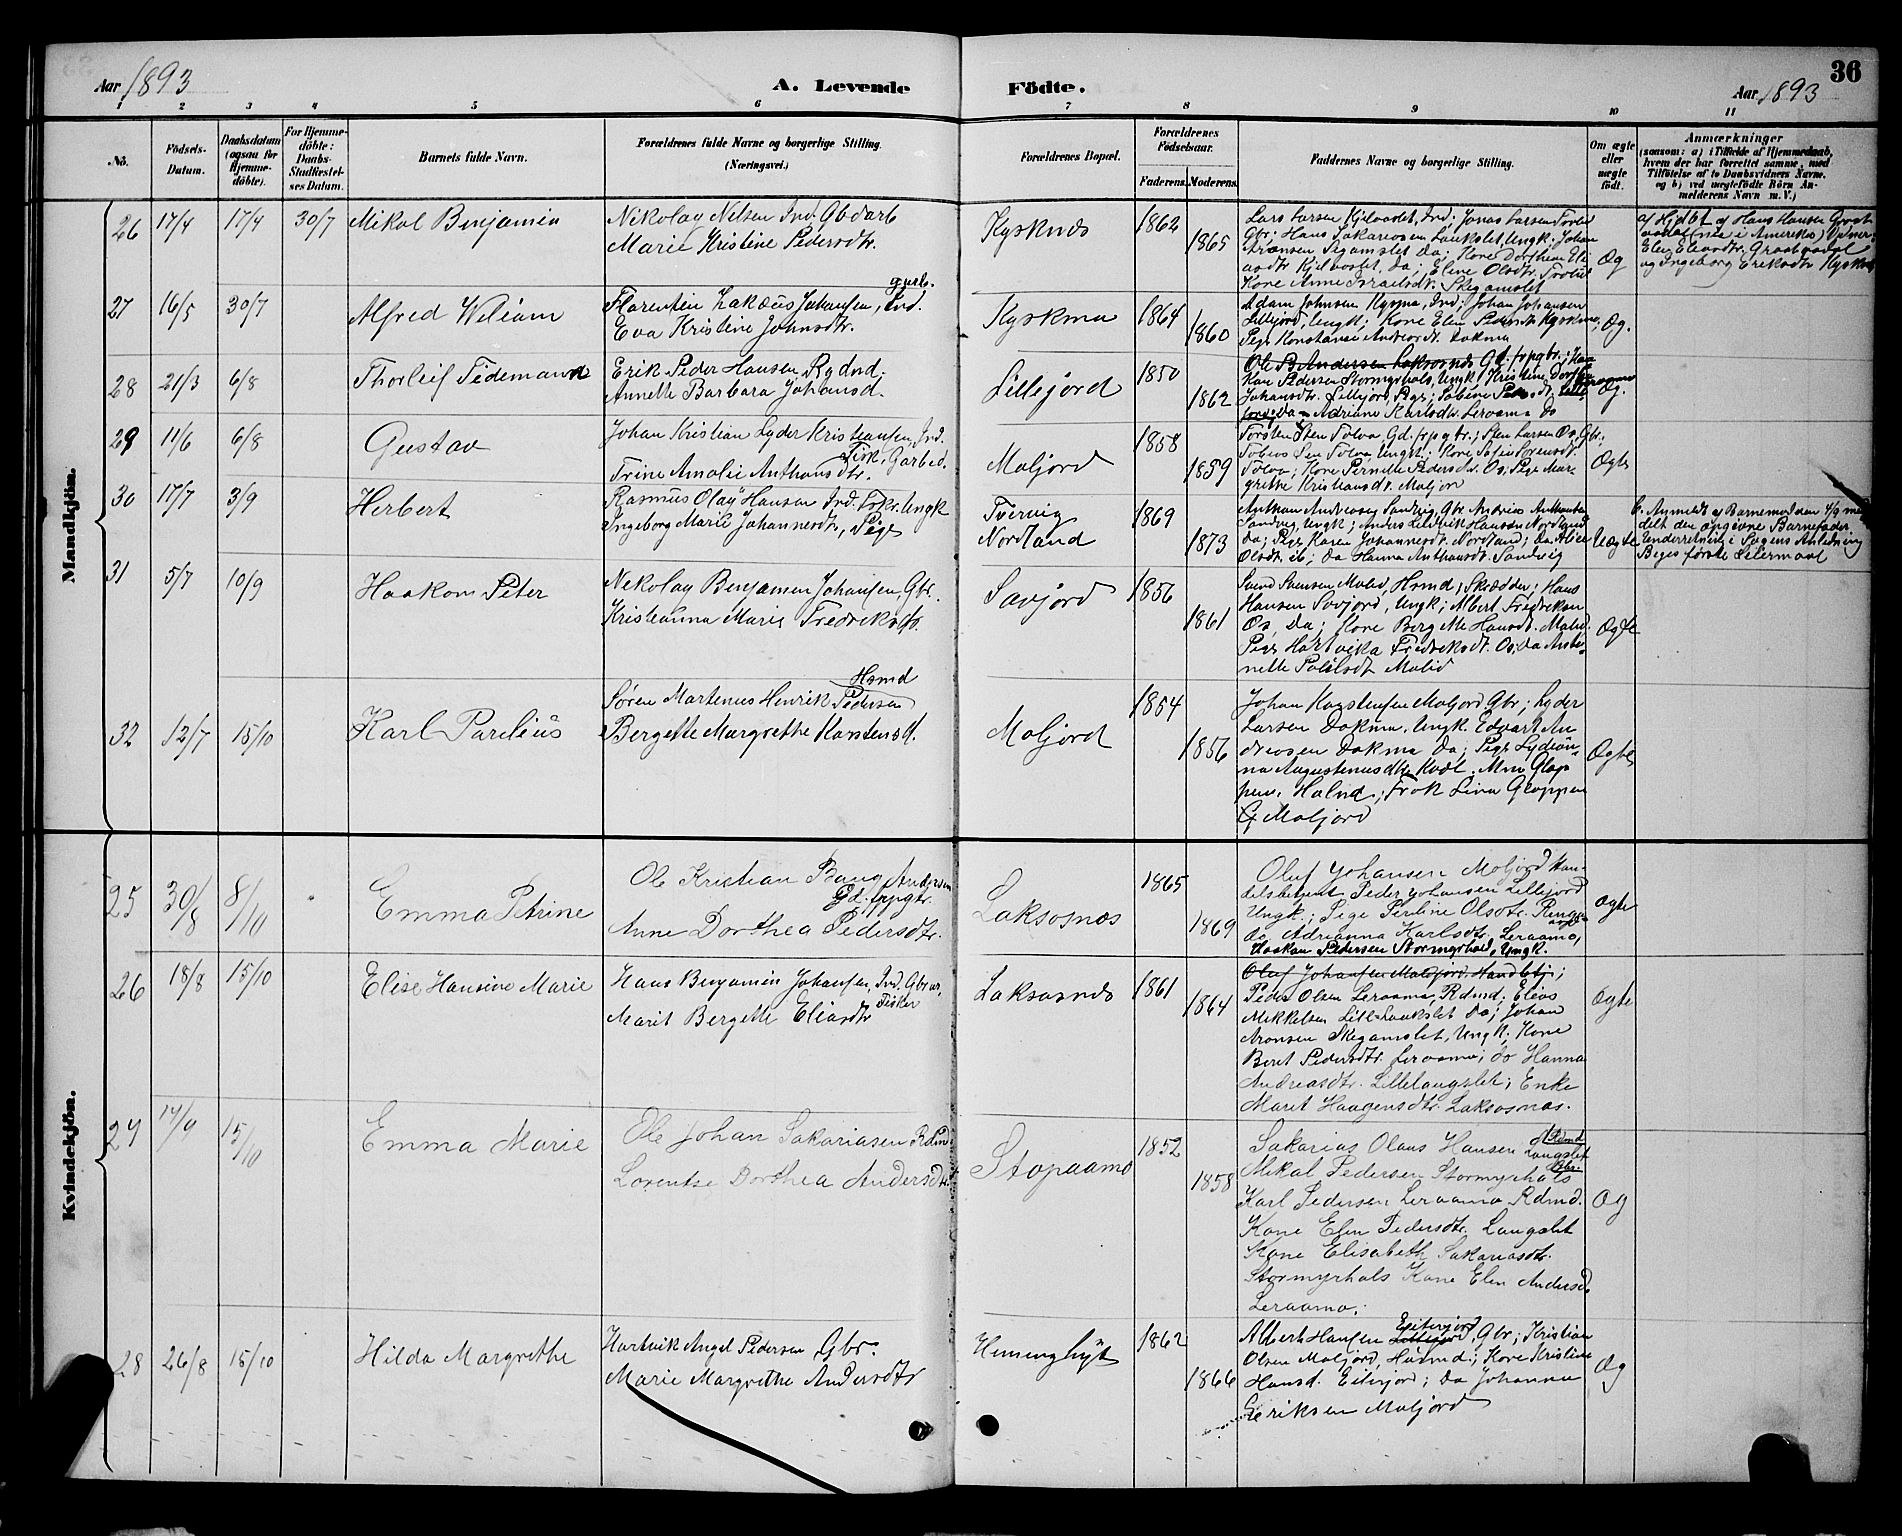 36
Aar 1893
A. Levende
Födte.
Aar 1893
1 2 3 4 5 6 7 8 9 10 11
No.
Födsels-
Datum.
Daabsdatum
(ogsaa for
Hjemme-
döbte).
For Hjemme-
döbte:
Daabs-
Stadfæstel-
ses Datum.
Barnets fulde Navn.
Forældrenes fulde Navne og borgerlige Stilling.
(Næringsvei.)
Forældrenes Bopæl.
Forældrenes
Födselsaar.
Faderens. Moderens.
Faddernes Navne og borgerlige Stilling.
Om ægte
eller
uægte
födt.
Anmærkninger
(saasom: a) i Tilfælde af Hjemmedaab,
hvem der har forrettet samme, med
Tilföielse af to Daabsvidners Navne,
og b) ved uægtefödte Börn An-
melderens Navn m. V.)
Mandkjön.
26 17/4 17/4 30/7 Mikal Benjamin
Nikolay Nilsen Ind. Gbdarb
Marie Kristine Pedersdtr.
Kysknds
1862
1865
Lars Larsen Kjelvaslet, Ind. Jonas Larsen
Gbr; Hans Sakariasen Laukslet, Ungk; Johan
Aronsen Skgamslet da; Kone Dorthea Eli-
asdtr Kjelvaslet, da; Eline Olsdtr.
Kone Anne Israelsdtr. Skgamslet
Æg
af Hjdbt af Hans Hansen
(nu i Amerika)
Elen Eliasdtr. Graatvadal
og Ingeborg Eriksdtr Kyskn
27 16/5 30/7 Alfred Wiliam
Florentin Zakæus Johansen, Ind. gaeb.
Eva Kristine Johnsdtr.
Kyskmo
1864
1860
Adam Johnsen Kysmo, Ind; Johan Johansen
Lillejord, Ungk; Kone Elen Pedersdtr Kyskmo;
Pige Konstanse Andreasdtr. Dokmo
Æg.
28 21/3 6/8 Thorleif Tidemann
Erik Peder Hansen Rydnd.
Annette Barbara Johansd.
Lillejord
1850
1862
Ole B Andersen Laksosnds Gd. frpgbr.; Haa
kon Pedersen Stormyrhals, Ungk; Kristine Dorthea
Johansdtr. Lillejord, Pige; Sabine
da Adriane Karlsdtr. Leraamo do
Æg.
29 11/6 6/8 Gustav
Johan Kristian Lyder Kristiansen, Ind.
Fisk. Garbed.
Trine Amalie Anthonsdtr.
Moljord
1858
1859
Torsten Sten Tolva, Gd. frpgbr.; Sten Larsen Os, Gbr;
Tobias Sen Tolva Ungk; Kone Sofie Sorensdtr.
Tolva; Kone Pernille Pedersdtr. Os; Pige Mar-
grethe Kristiansdtr. Moljor
Ægte
30 17/7 3/9 Herbert
Rasmus Olay Hansen Ind. Fskr. Ungk
Ingeborg Marie Johannesdtr, Pige
Tvervig
Nordland
1869
1873
Anthon Andreasen Sandvig, Gbr. Andreas Anthonsen
Sandvig, Ungk; Anders Ludvik Hansen Nordland
da; Pige Karen Johannesdtr. Nordland; da Alise
Olsdtr. ib; da Hanna Anthonsdtr. Sandvig
Uægte
b. Anmeldt af Barnemoderen 4/9 med-
delt den opgivne Barnefader
Underretning i Sagens Anledning
Beges förste Leiermaal
31 5/7 10/9 Haakon Peter
Nikolay Benjamin Johansen, Gbr.
Kristianna Marie Fredriksdtr.
Savjord
1856
1861
Svend Svensen Molid, Hsmd; Skrædder; Hans
Hansen Savjord, Ungk; Albert Fredriksen
Os, da; Kone Bergette Hansdtr. Molid.
Pige Hartvika Fredriksdtr. Os; da Anto-
nette Polilsdtr Molid
Ægte
32 12/7 15/10 Karl Parelius
Søren Martenus Henrik Pedersen Hsmd
Bergette Margrethe Karstensd.
Moljord
1854
1856
Johan Karstensen Moljord Gbr; Lyder
Larsen Dokmo, Ungk. Edvart An-
dreasen Dokmo da; Pige Lydian-
na Augustinusdtr. Kvdl. Mine Glop-
pen, Holmd; Frøk Lina Gloppen
Moljord
Ægte
Kvindekjön.
25 30/8 8/10 Emma Petrine
Ole Kristian Bang Andersen
Gd. frpgbr.
Anne Dorthea Pedersdtr.
Laksosnos
1865
1869
Oluf Johansen Moljord Han-
delsbetjent Peder Johansen Lillejord
Ungk; Pige Perline Olsdtr.
do Adrianna Karlsdtr. Leraamo,
Haakon Pedersen Stormyrhals, Ungk.
Ægte
26 18/8 15/10 Elise Hansine Marie
Hans Benjamin Johansen, Ind. Gbrar,
Fisker
Marit Bergette Eliasdtr
Laksosnds
1861
1864
Oluf Johansen Moljord. Handbtj;
Peder Olsen Leraamo, Rdmd; Elias
Mikkelsen Lill-Laukslet da; Johan
Aronsen Skgamslet, Ungk; Kone
Beret Pedersdtr. Leraamo; do Hanna
Andreasdtr. Lillelaugslet; Enke
Marit Haagensdtr. Laksosnos.
Ægte
27 14/9 15/10 Emma Marie
Ole Johan Sakariasen Rdmd
Lorentse Dorthea Andersdtr
Stopaamo
1852
1858
Sakarias Olaus Hansen Rdmd Laugslet
Mikal Pedersen Stormyrhals Gbr.
Karl Pedersen Leraamo Rdmd.
Kone Elen Pedersdtr. Laugslet
Kone Elisabeth Sakariasdtr.
Stormyrhals Kone Elen Andersd.
Leraamo.
Æg
28 26/8 15/10 Hilda Margrethe
Hartvik Angel Pedersen Gbr.
Marie Margrethe Andersdtr
Heminghyt
1862
1866
Albert Hansen Eiterjord, Gbr; Kristian
Olsen Moljord, Husmd; Kone Kristine
Hansd. Eiterjord; Da Johanna
Eriksen Moljord
Æg